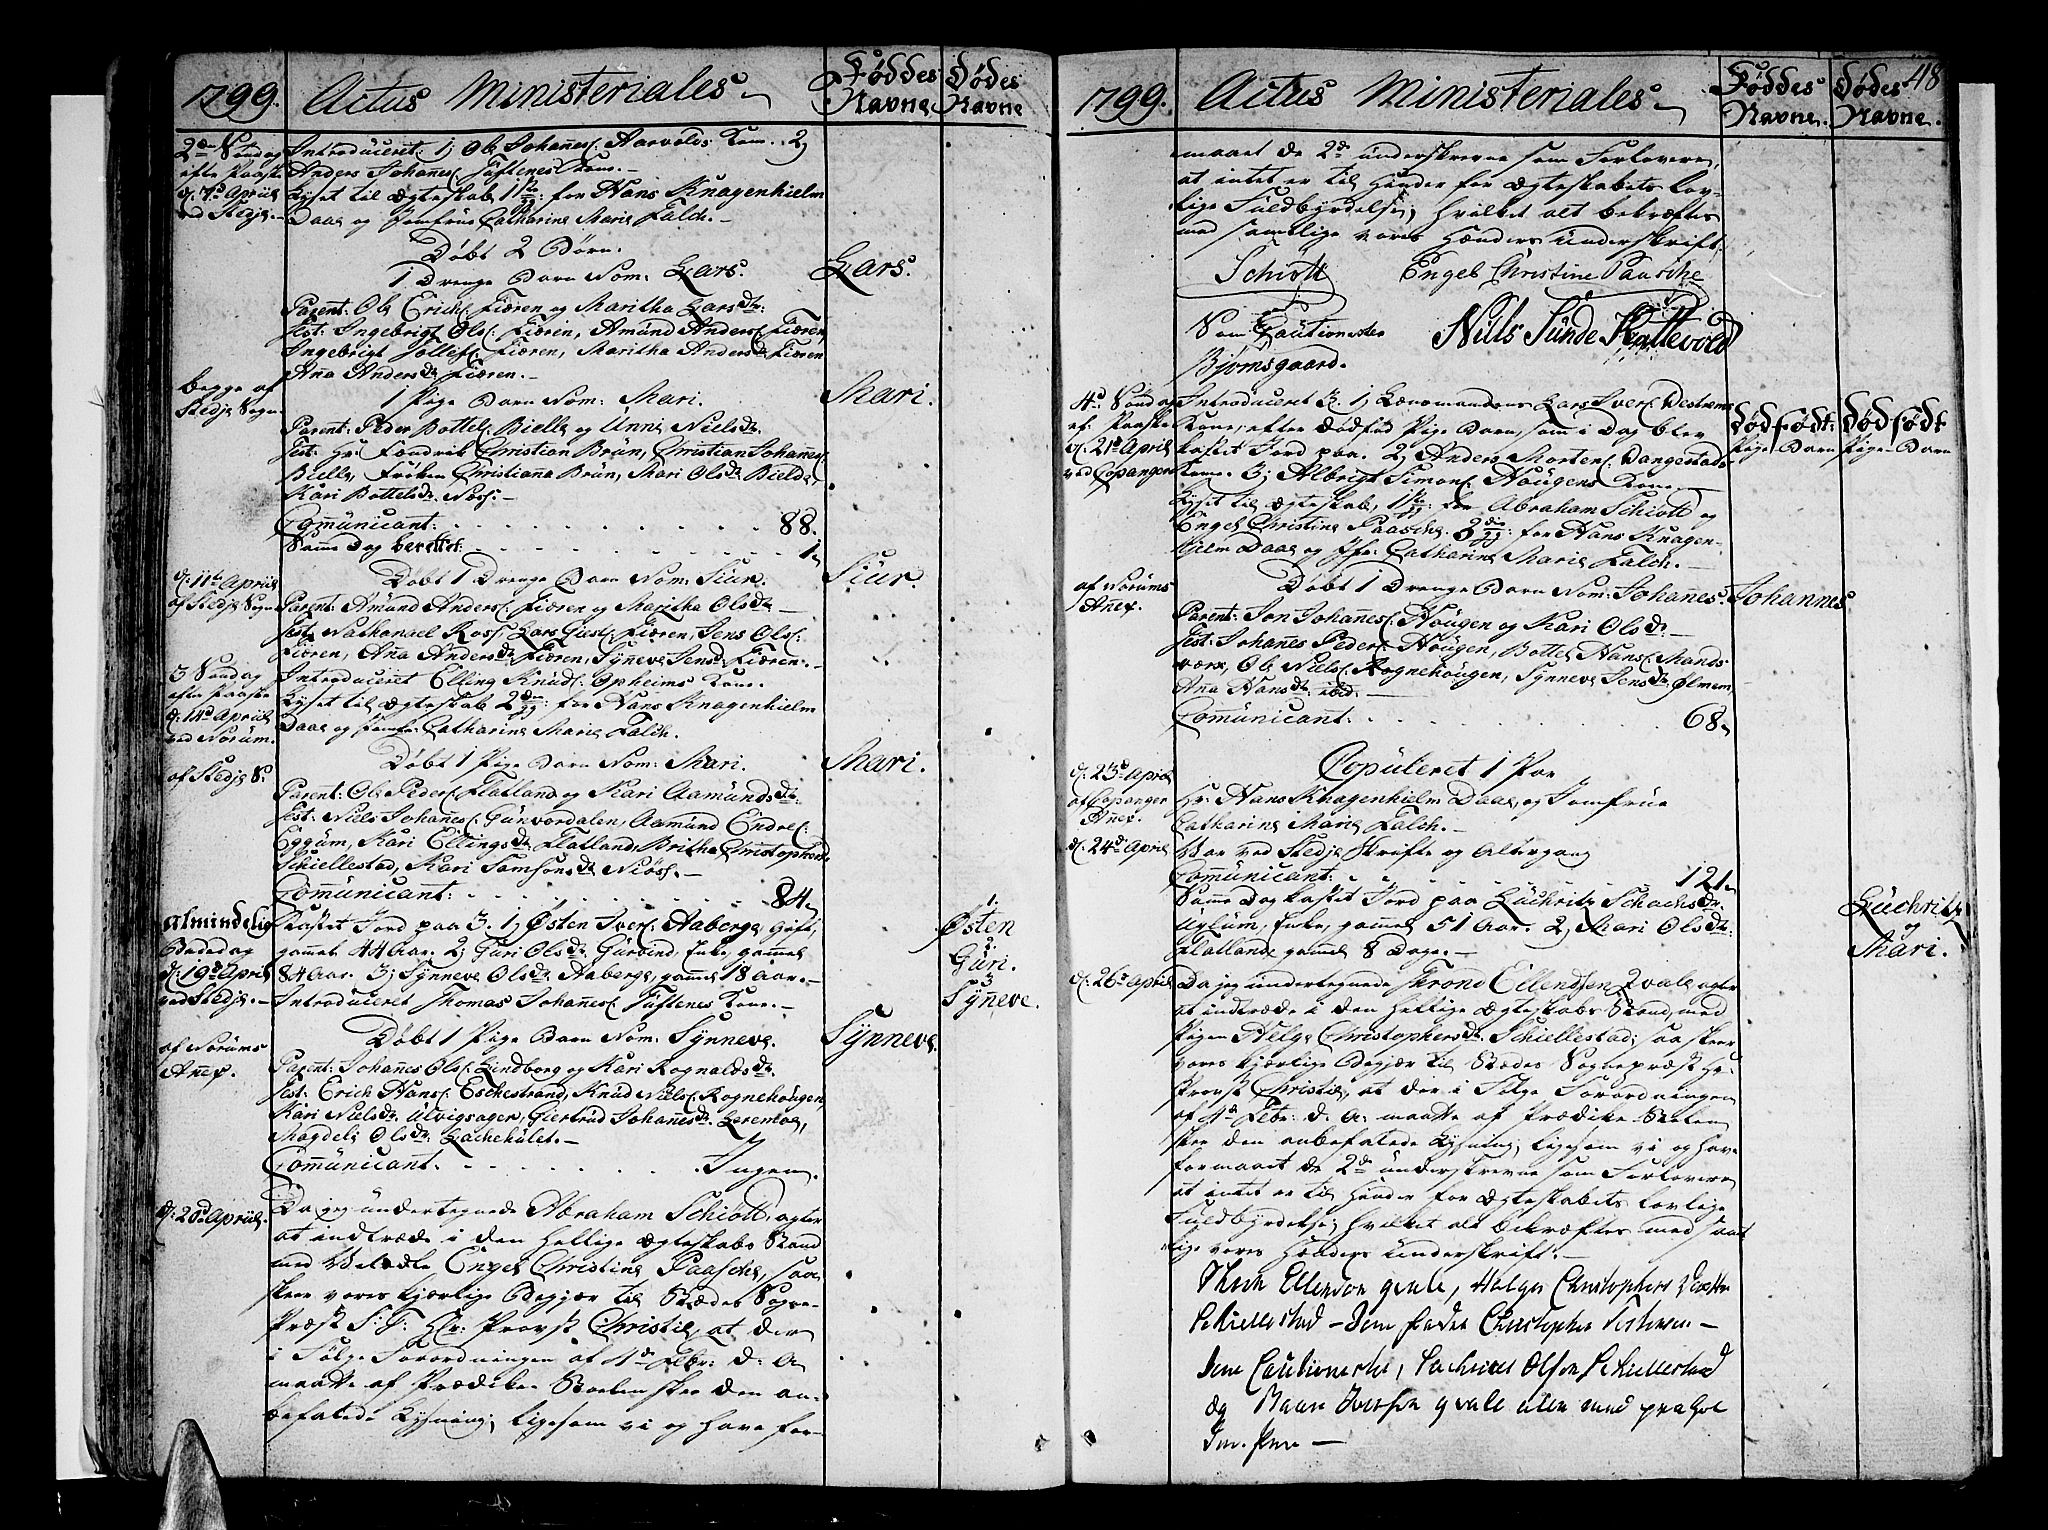 1799. Actus Ministeriales Føddes Navne Dødes Navne
2den Søndag efter Paaske d. 7de April ved Stedje
Introduceret: 1) Ole Johanes: Aarvolds Kone. 2)
Anders Johanes: Tuftenes Kone.
Lyset til Ægteskab 1ste : for Hans Knagenhielm
Daae og Jomfrue Catharina Maria Falch.
Døbt 2 Børn.
1 Drenge Barn Nom: Lars. Lars.
Parent: Ole Erichs: Fiæren og Maritha Larsdr:
Test: Ingebrigt Ols: Fiæren, Amund Anders: Fiæren,
Ingebrigt Tollefs: Fiæren, Maritha Andersdr Fiæren
Ana Andersdr Fiæren.
begge af Stedje Sogn.
1 Pige Barn Nom: Mari. Mari.
Parent: Peder Bottels: Bielle og Unni Nielsdr
Test: Hr: Christian Brun, Christian Johanes:
Bielle, Frøken Christiana Brun, Mari Olsdr Bielde,
Kari Bottelsdr Noss.
Comunicant: 88.
Same Dag berettet: 1
d. 11te April af Stedje Sogn
Døbt 1 Drenge Barn Nom: Siur. Siur.
Parent: Amund Anders: Fiæren og Maritha Olsdr
Test: Nathanael Ross, Lars Fiæren, Jens Ols:
Fiæren, Ana Andersdr Fiæren, Syneve Jensd: Fiæren.
3 Søndag efter Paaske d. 14de April ved Norum.
Introduceret Elling Knuds: Opheims Kone.
Lyset til Ægteskab 2den : for Hans Knagenhielm
Daae og Jomfr: Catharina Maria Falch.
af Stedje S.
Døbt 1 Pige Barn Nom: Mari. Mari.
Parent: Ole Peders: Flatland og Kari Aamundsdr
Test: Niels Johanes: Gunvordalen, Aamund Endres:
Eggum, Kari Ellingsdr Flatland, Britha Christophersdr
Skiellestad, Kari Samsonsdr Niøss.
Comunicant: 84.
Almindelig Bededag d. 19de April ved Stedje.
Kastet Jord paa 3. 1) Østen Ivers: Aaberge, gift,
gamel 44 Aar. 2) Guri Olsdr Gurvind, Enke, gamel
84 Aar. 3) Synneve Olsdr Aaberge, gamel 18 Aar.
1. Østen 2. Guri. 3 Syneve.
Introduceret Thomas Johanes: Tuftenes Kone.
af Norums Anex.
Døbt 1 Pige Barn Nom: Synneve. Synneve.
Parent: Johanes Ols: Lindborg og Kari Rognaldsdr
Test: Erich Hans: Eschestrand, Knud Niels: Rognehougen,
Kari Nielsdr Ulvigsagen, Giertrud Johanesdr Leremoe,
Magdeli Olsdr: Lachehulet.
Comunicant: Ingen.
d. 20de April.
Da jeg undertegnede Abraham Schiøtt, agter
at indtræde i den hellige Ægteskabs Stand
med Velædle Engel Christina Paasche, saa
skeer vores kjærlige Begjær til Stædets Sogne-
Præst S: T: Hr: Provst Christie, at der
i Følge Forordningen af 4de Febr: d: A
maatte af Prædike Stoelen skee den an-
befalede Lysning; ligesom vi og have for-
1799. Actus Ministeriales Føddes Navne. Dødes Navne. 48
maaet de 2de underskrevne som Forlovere,
at intet er til Hinder for Ægteskabets lov-
lige Fuldbyrdelse; hvilket alt bekræftes
med samtlige vores Hænders Underskrift.
Schiøtt Engel Christine Paasche
Som Cautionister Niels Sunde Kattevold
Bjørnsgaard.
4de Søndag ef: Paaske d. 21de April ved Copanger
Introduceret 3. 1) Lænsmandens Lars Ivers: Vestrems
Kone, efter dødfød Pige Barn, som i Dag blev
kastet Jord paa. 2) Anders Mortens: Vangestads
Kone. 3) Albrigt Simons: Hougens Kone.
Dødfødt: Pige Barn Dødfødt Pige-Barn
Lyset til Ægteskab, 1ste : for Abraham Schiøtt og
Engel Christina Paasche. 3die : for Hans Knagen-
hielm Daae og Jfr: Catharina Maria Falch.
af Norums Anex.
Døbt 1 Drenge Barn Nom: Johanes. Johannes
Parent: Jon Johanes: Hougen og Kari Olsdr
Test: Johanes Peders: Hougen, Bottel Hans: Mands-
værk, Ole Niels: Rognehougen, Synneve Jensdr: Ølmem,
Ana Hansdr ibid:
Comunicant: 68.
d. 23de April af Copanger Anex.
Copuleret 1 Par
Hr: Hans Knagenhielm Daae, og Jomfrue
Catharina Maria Falch.
d. 24de April
Var ved Stedje Skrifte og Altergang
Comunicant: 121.
Same Dag kastet Jord paa Luchritz Schachsdr
Uglum, Enke, gamel 51 Aar. 2) Mari Olsdr:
Flatland, gamel 8 Dage.
Luchritz og Mari.
d. 26de April
Da jeg undertegnede Thrond Ellendsen Qvale agter
at indtræde i den hellige Ægteskabs Stand, med
Pigen Helga Christophersdr. Schiellestad; saa skeer
vores kjærlige Begjær til Stedes Sognepræst Hr.
Provst Christie, at der i Følge Forordningen
af 4de Febr: d: A: maatte af Prædike-Stoelen
skee den anbefalede Lysning; ligesom vi og have
formaaet de 2de underskrevne som Forlovere
at intet er til Hinder for Ægteskabets lovlige
Fuldbyrdelse; hvilket alt bekræftes med samt-
lige vores Hænders Underskrift.
Ellenson qvale, Helge Christophers Datter
Schiellestad — Christopher
Cautionister, Olson Schiellestad
og Iversen qvale med